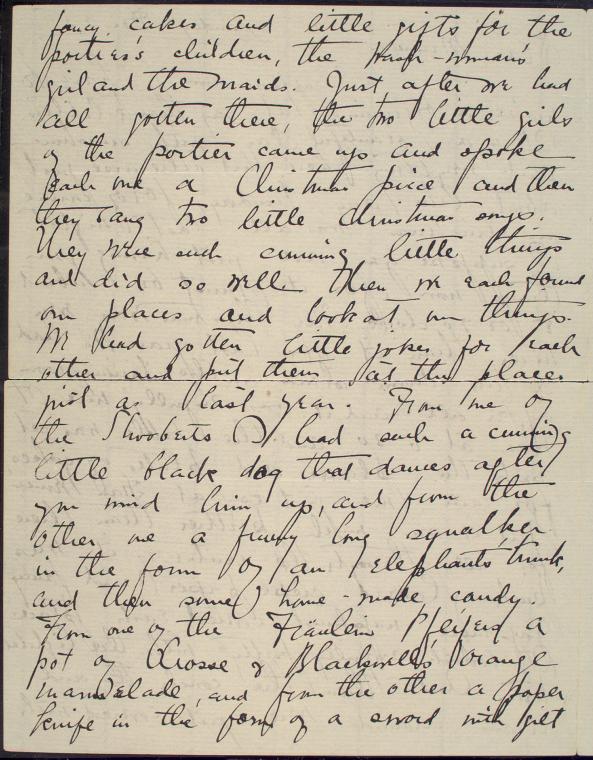 fancy cakes and little gifts for the
portier's children, the wash-woman's
girl and the maids. Just after we had
all gotten there, the two little girls
of the portier came up and spoke
each one a Christmas piece and then
they sang two little Christmas songs.
They were such cunning little things
and did so well. Then we each found
our places and looked at our things.
We had gotten little jokes for each
other and put them at the places
just as last year. From one of
the I had such a cunning
little black dog that dances after
you wind him up, and from the
other one a funny long squalker
in the form of an elephants trunk,
and then some home-made candy
From one of the Fräulein Pfeifers a
pot of Crosse & Blackwell's Orange
marmelade, and from the other a paper
knife in the form of a sword with gilt